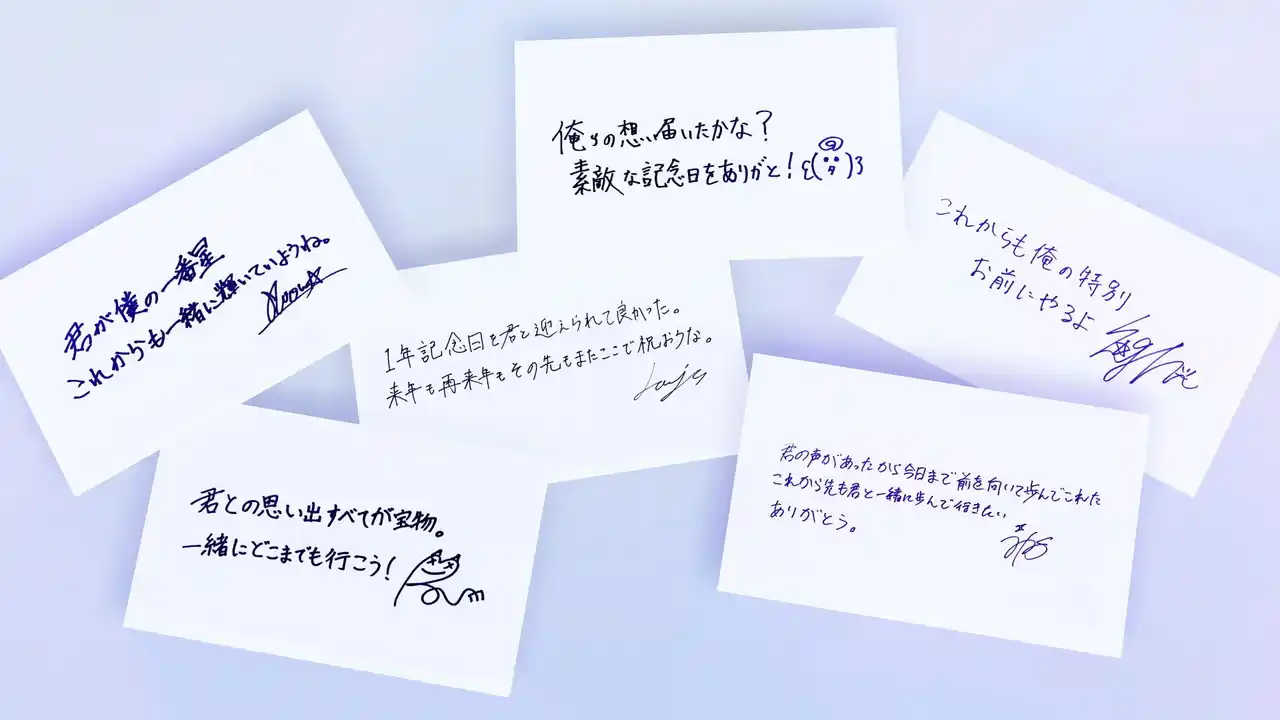 俺らの想い届いたかな?
素敵な記念日をありがと!
君が僕の一番星
これからも一緒に輝いていようね。
1年記念日を君と迎えられて良かった。
来年も再来年もその先もまたここで祝おうな。
これからも俺の特別
お前にやるよ
君との思い出すべてが宝物。
一緒にどこまでも行こう!
君の声があったから今日まで前を向いて歩んでこれた
これから先も君と一緒に歩んで行きたい
ありがとう。